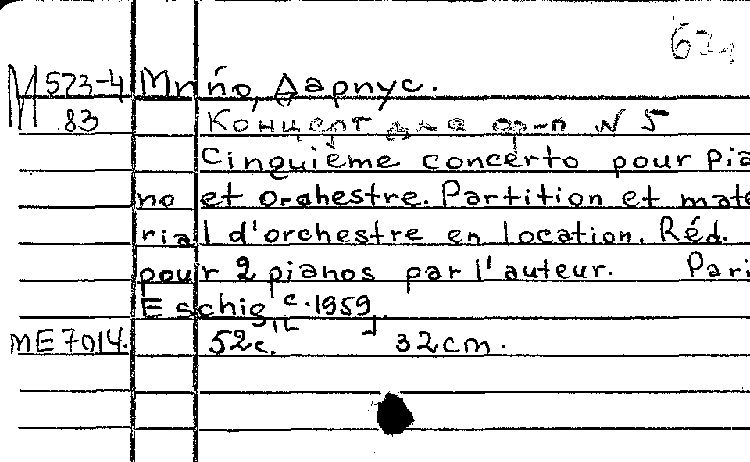 M 573-4 Мийо, Дариус.
83 Концерт для ф-п N 5
Cinquième concerto pour pia
no et orchestre. Partition et maté
rial d'orchestre en location. Réd.
pour 2 pianos par l'auteur. Pari
Eschig c. 1959
ME 7014. 52c. 32cm.